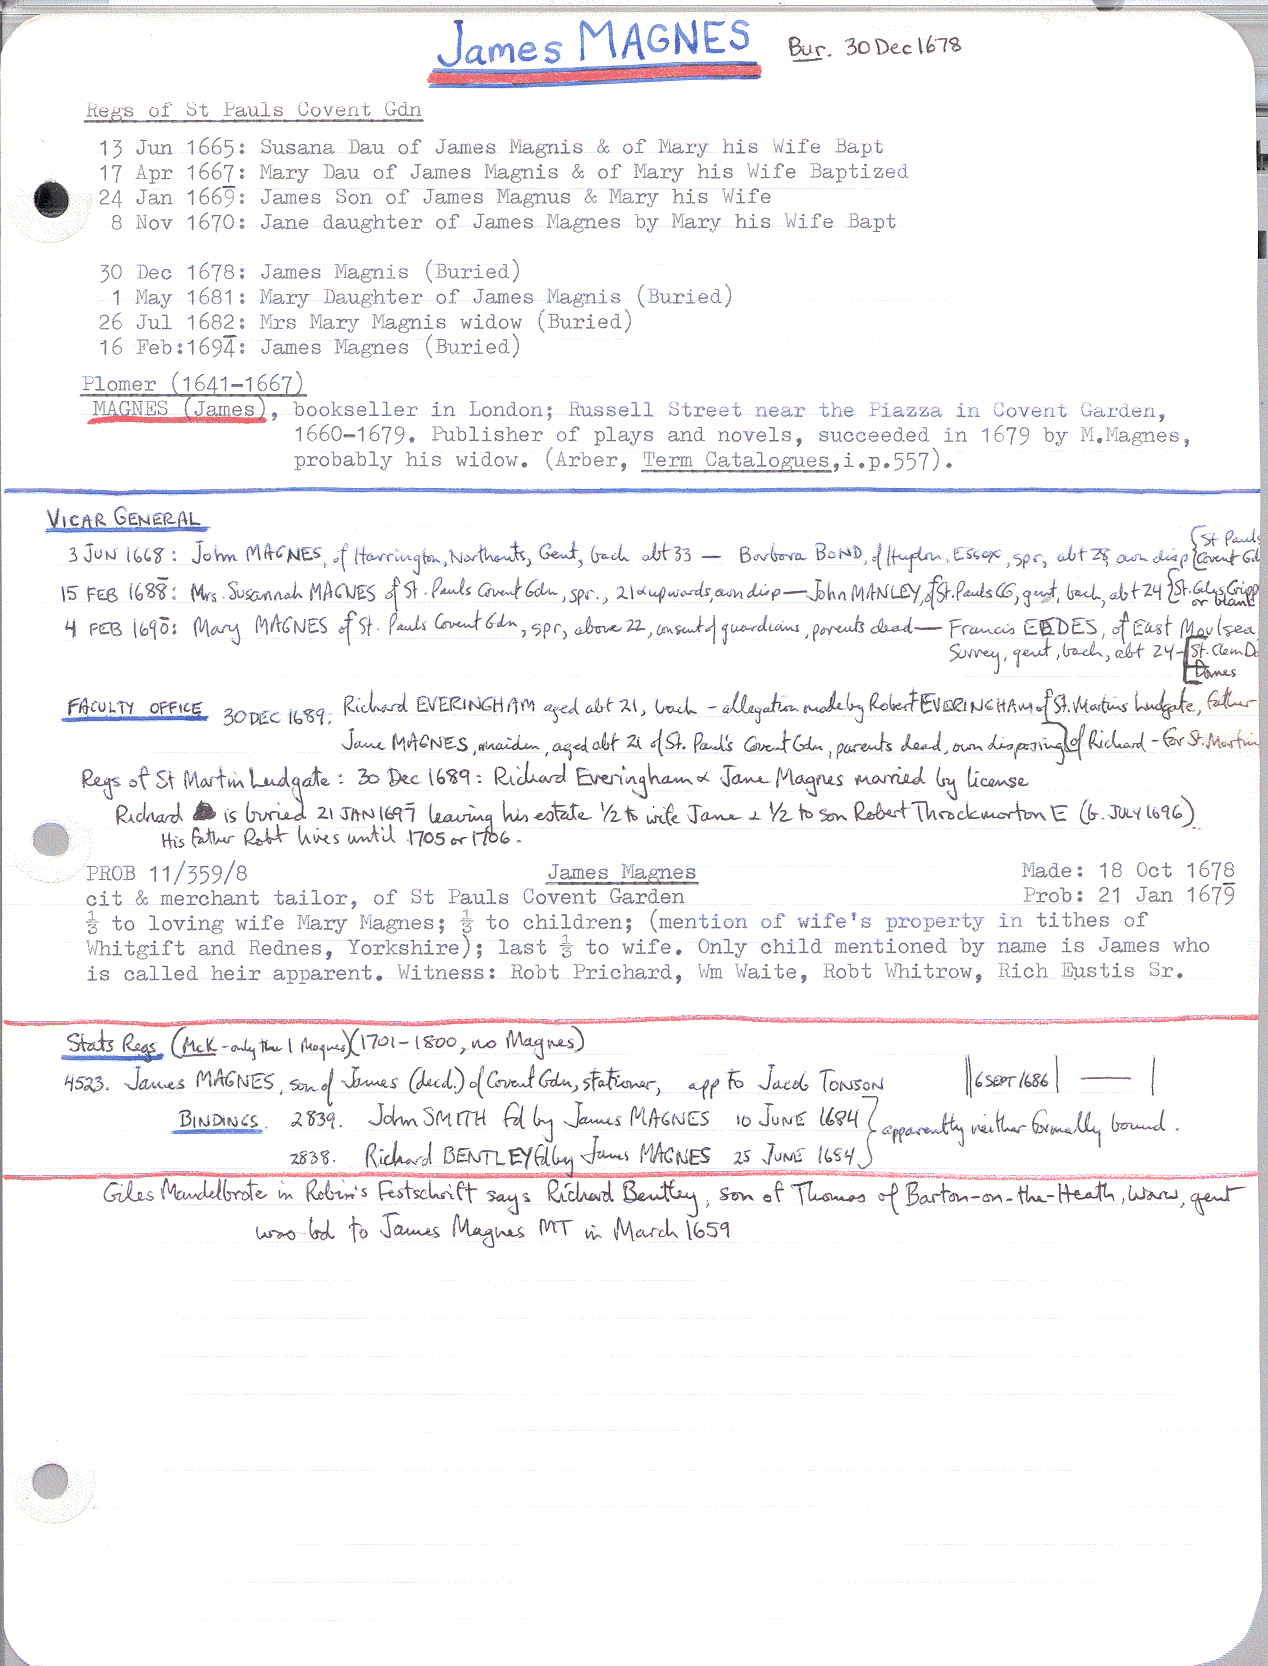 James MAGNES Bur. 30 Dec 1678
Regs of St Pauls Covent Gdn
13 Jun 1665: Susana Dau of James Magnis & of Mary his Wife Bapt
17 Apr 1667: Mary Dau of James Magnis & of Mary his Wife Baptized
24 Jan 1669: James Son of James Magnus & Mary his Wife
8 Nov 1670: Jane daughter of James Magnes by Mary his Wife Bapt
30 Dec 1678: James Magnis (Buried)
1 May 1681: Mary Daughter of James Magnis (Buried)
26 Jul 1682: Mrs Mary Magnis widow (Buried)
16 Feb:1694: James Magnes (Buried)
Plomer (1641-1667)
MAGNES (James), bookseller in London; Russell Street near the Piazza in Covent Garden,
1660-1679. Publisher of plays and novels, succeeded in 1679 by M.Magnes,
probably his widow. (Arber, Term Catalogues,i.p.557).
VICAR GENERAL
3 JUN 1668: John MAGNES, of Harrington, Northants, Gent, bach abt 33 — Barbara BOND, of Huydon, ESSEX, spr, abt 28, own disp {St Pauls Covent Gd
15 FEB 1688: Mrs. Susannah MAGNES of St. Pauls Covent Gdn, spr., 21 & upwards, own disp — John MANLEY, of St. Pauls CG, gent, bach, abt 24 {St. Giles Cripp or blank
4 FEB 1690: Mary MAGNES of St. Pauls Covent Gdn, spr, above 22, consent of guardians, parents dead — Francis EEDES, of East Moulsea,
Surrey, gent, bach, abt 24 - [St. Clem D
Danes
FACULTY OFFICE 30 DEC 1689: Richard EVERINGHAM aged abt 21, bach - allegation made by Robert EVERINGHAM of St. Martins Ludgate, father
Jane MAGNES, maiden, aged abt 21 of St. Paul's Covent Gdn, parents dead, own disposing] of Richard - for St. Martin
Regs of St Martin Ludgate: 30 Dec 1689: Richard Everingham & Jane Magnes married by license
Richard is buried 21 JAN 1697 leaving his estate 1/2 to wife Jane & 1/2 to son Robert Throckmorton E (b. JULY 1696)
His father Robt lives until 1705 or 1706.
PROB 11/359/8 James Magnes Made: 18 Oct 1678
cit & merchant tailor, of St Pauls Covent Garden Prob: 21 Jan 1679
⅓ to loving wife Mary Magnes; ⅓ to children; (mention of wife's property in tithes of
Whitgift and Rednes, Yorkshire); last ⅓ to wife. Only child mentioned by name is James who
is called heir apparent. Witness: Robt Prichard, Wm Waite, Robt Whitrow, Rich Eustis Sr.
Stats Regs (McK - only the 1 Magnes)(1701-1800, no Magnes)
4523. James MAGNES, son of James (decd.) of Covent Gdn, stationer, app to Jacob TONSON ||6 SEPT 1686| — |
BINDINGS. 2839. John SMITH fd by James MAGNES 10 JUNE 1684 } apparently neither formally bound.
2838. Richard BENTLEY fd by James MAGNES 25 JUNE 1684 }
Giles Mandelbrote in Robin's Festschrift says Richard Bentley, son of Thomas of Barton-on-the-Heath, Warw, gent
was bd to James Magnes MT in March 1659